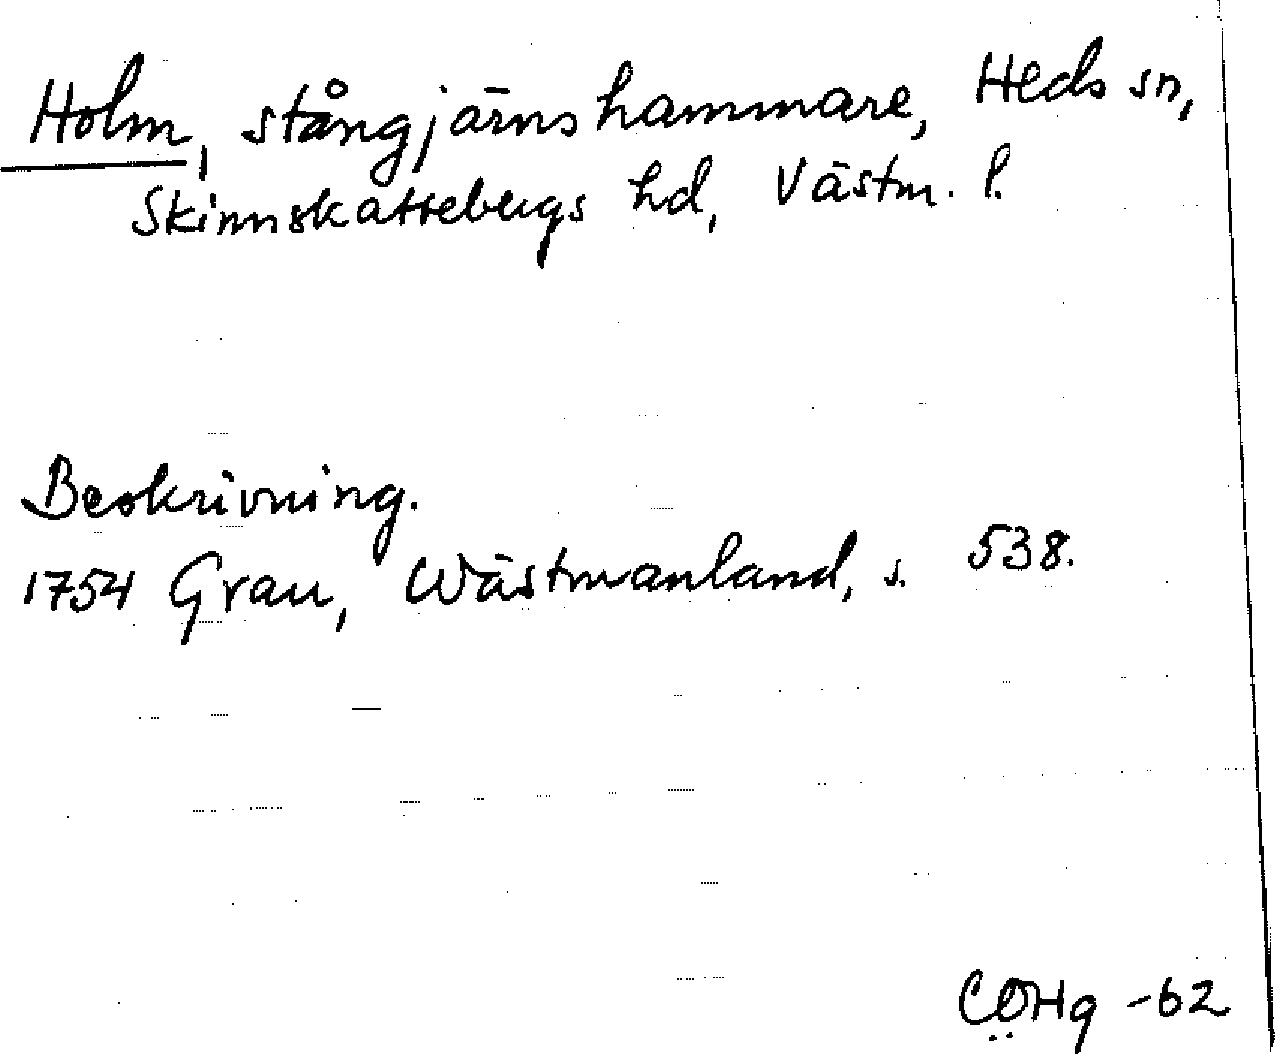 Holm, stångjärnshammare, Heds sn,
Skinnskattebergs hd, Västm. l.
Beskrivning.
1754 Grau, Wästmanland, s. 538.
CÖHg -62